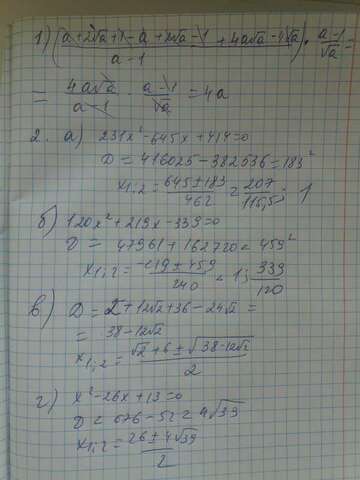 1) (a+2√a+1-a+2√a-1+4a√a-4√a / a-1) · a-1/√a =
= 4a√a/a-1 · a-1/√a = 4a
2. а) 231x²-645x+414=0
D = 416025-382536=183²
x1;2 = 645±183/462 = 207/115,5; 1
б) 120x²+219x-339=0
D = 47961+162720=459²
x1;2 = -219±459/240 = 1; 339/120
в) D = 2+12√2+36-24√2 =
= 38-12√2
x1,2 = √2+6±√38-12√2/2
г) x²-26x+13=0
D = 676-52=4√39
x1;2 = 26±4√39/2